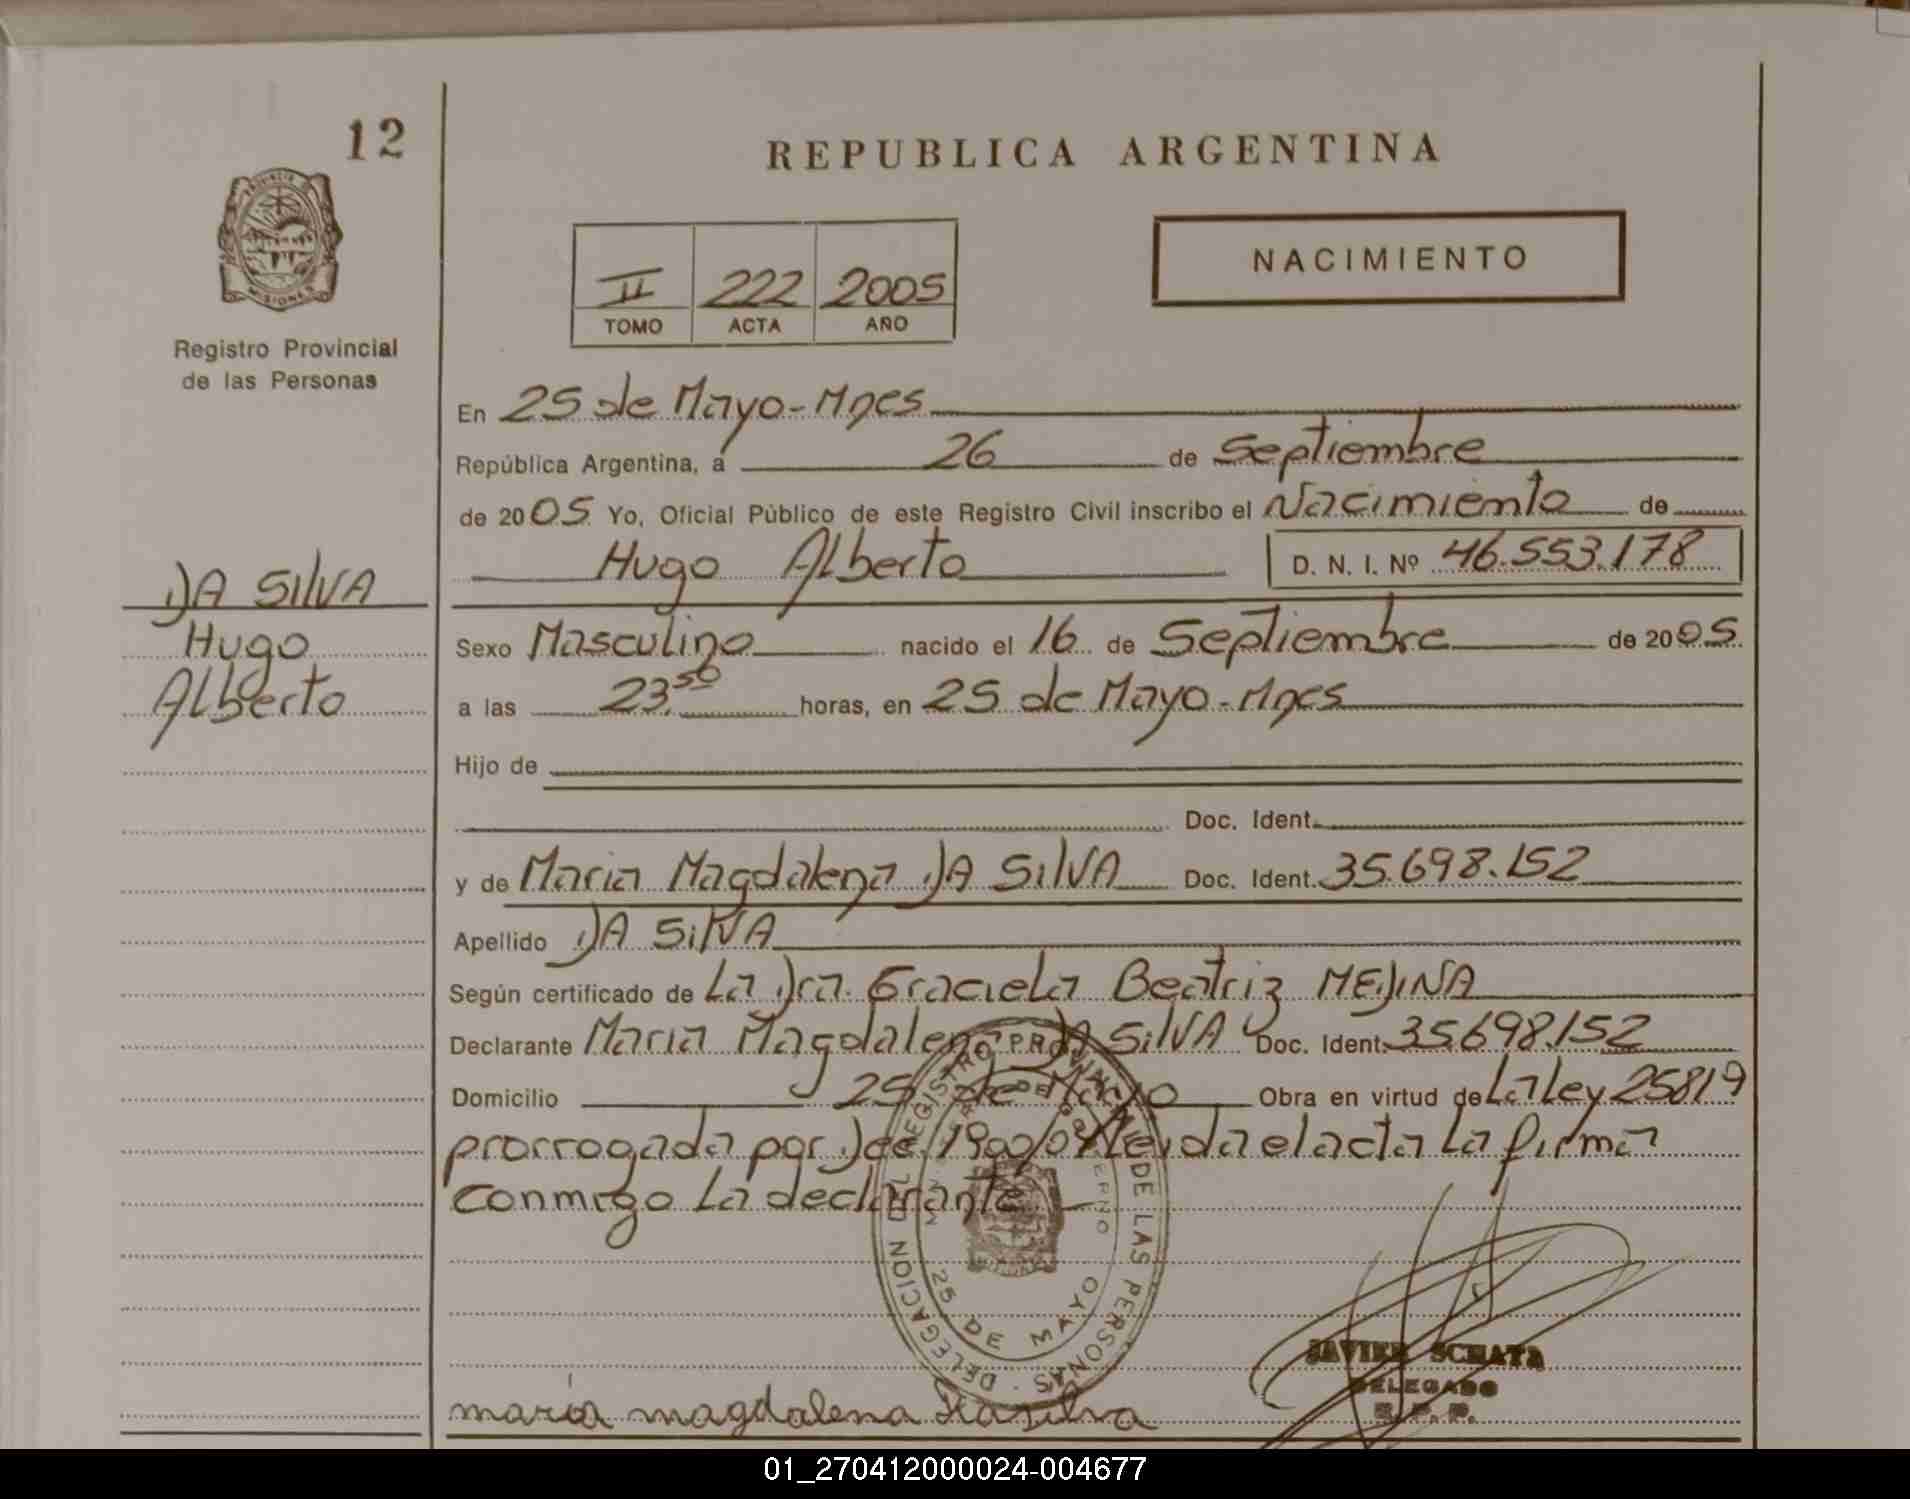 12
REPUBLICA ARGENTINA
PROVINCIA DE
MISIONES
Registro Provincial
de las Personas
II 222 2005
TOMO ACTA AÑO
NACIMIENTO
En 25 de Mayo - Mnes
República Argentina, a 26 de Septiembre
de 2005 Yo, Oficial Público de este Registro Civil inscribo el Nacimiento de
Hugo Alberto D. N. I. Nº 46.553.178
DA SILVA
Hugo
Alberto
Sexo Masculino nacido el 16 de Septiembre de 2005
a las 23.50 horas, en 25 de Mayo - Mnes
Hijo de
Doc. Ident.
y de Maria Magdalena DA SILVA Doc. Ident. 35.698.152
Apellido DA SILVA
Según certificado de La Dra. Graciela Beatriz MEDINA
Declarante Maria Magdalena DA SILVA Doc. Ident. 35698.152
Domicilio 25 de Mayo Obra en virtud de La Ley 25819
prorrogada por Dec. leida el acta La firma
conmigo La declarante
DELEGACIÓN DEL REGISTRO PROVINCIAL DE LAS PERSONAS
DE GOBIERNO
25 DE MAYO
JAVIER SCHATA
DELEGADO
R. P. P.
maria magdalena Da silva
01_270412000024-004677